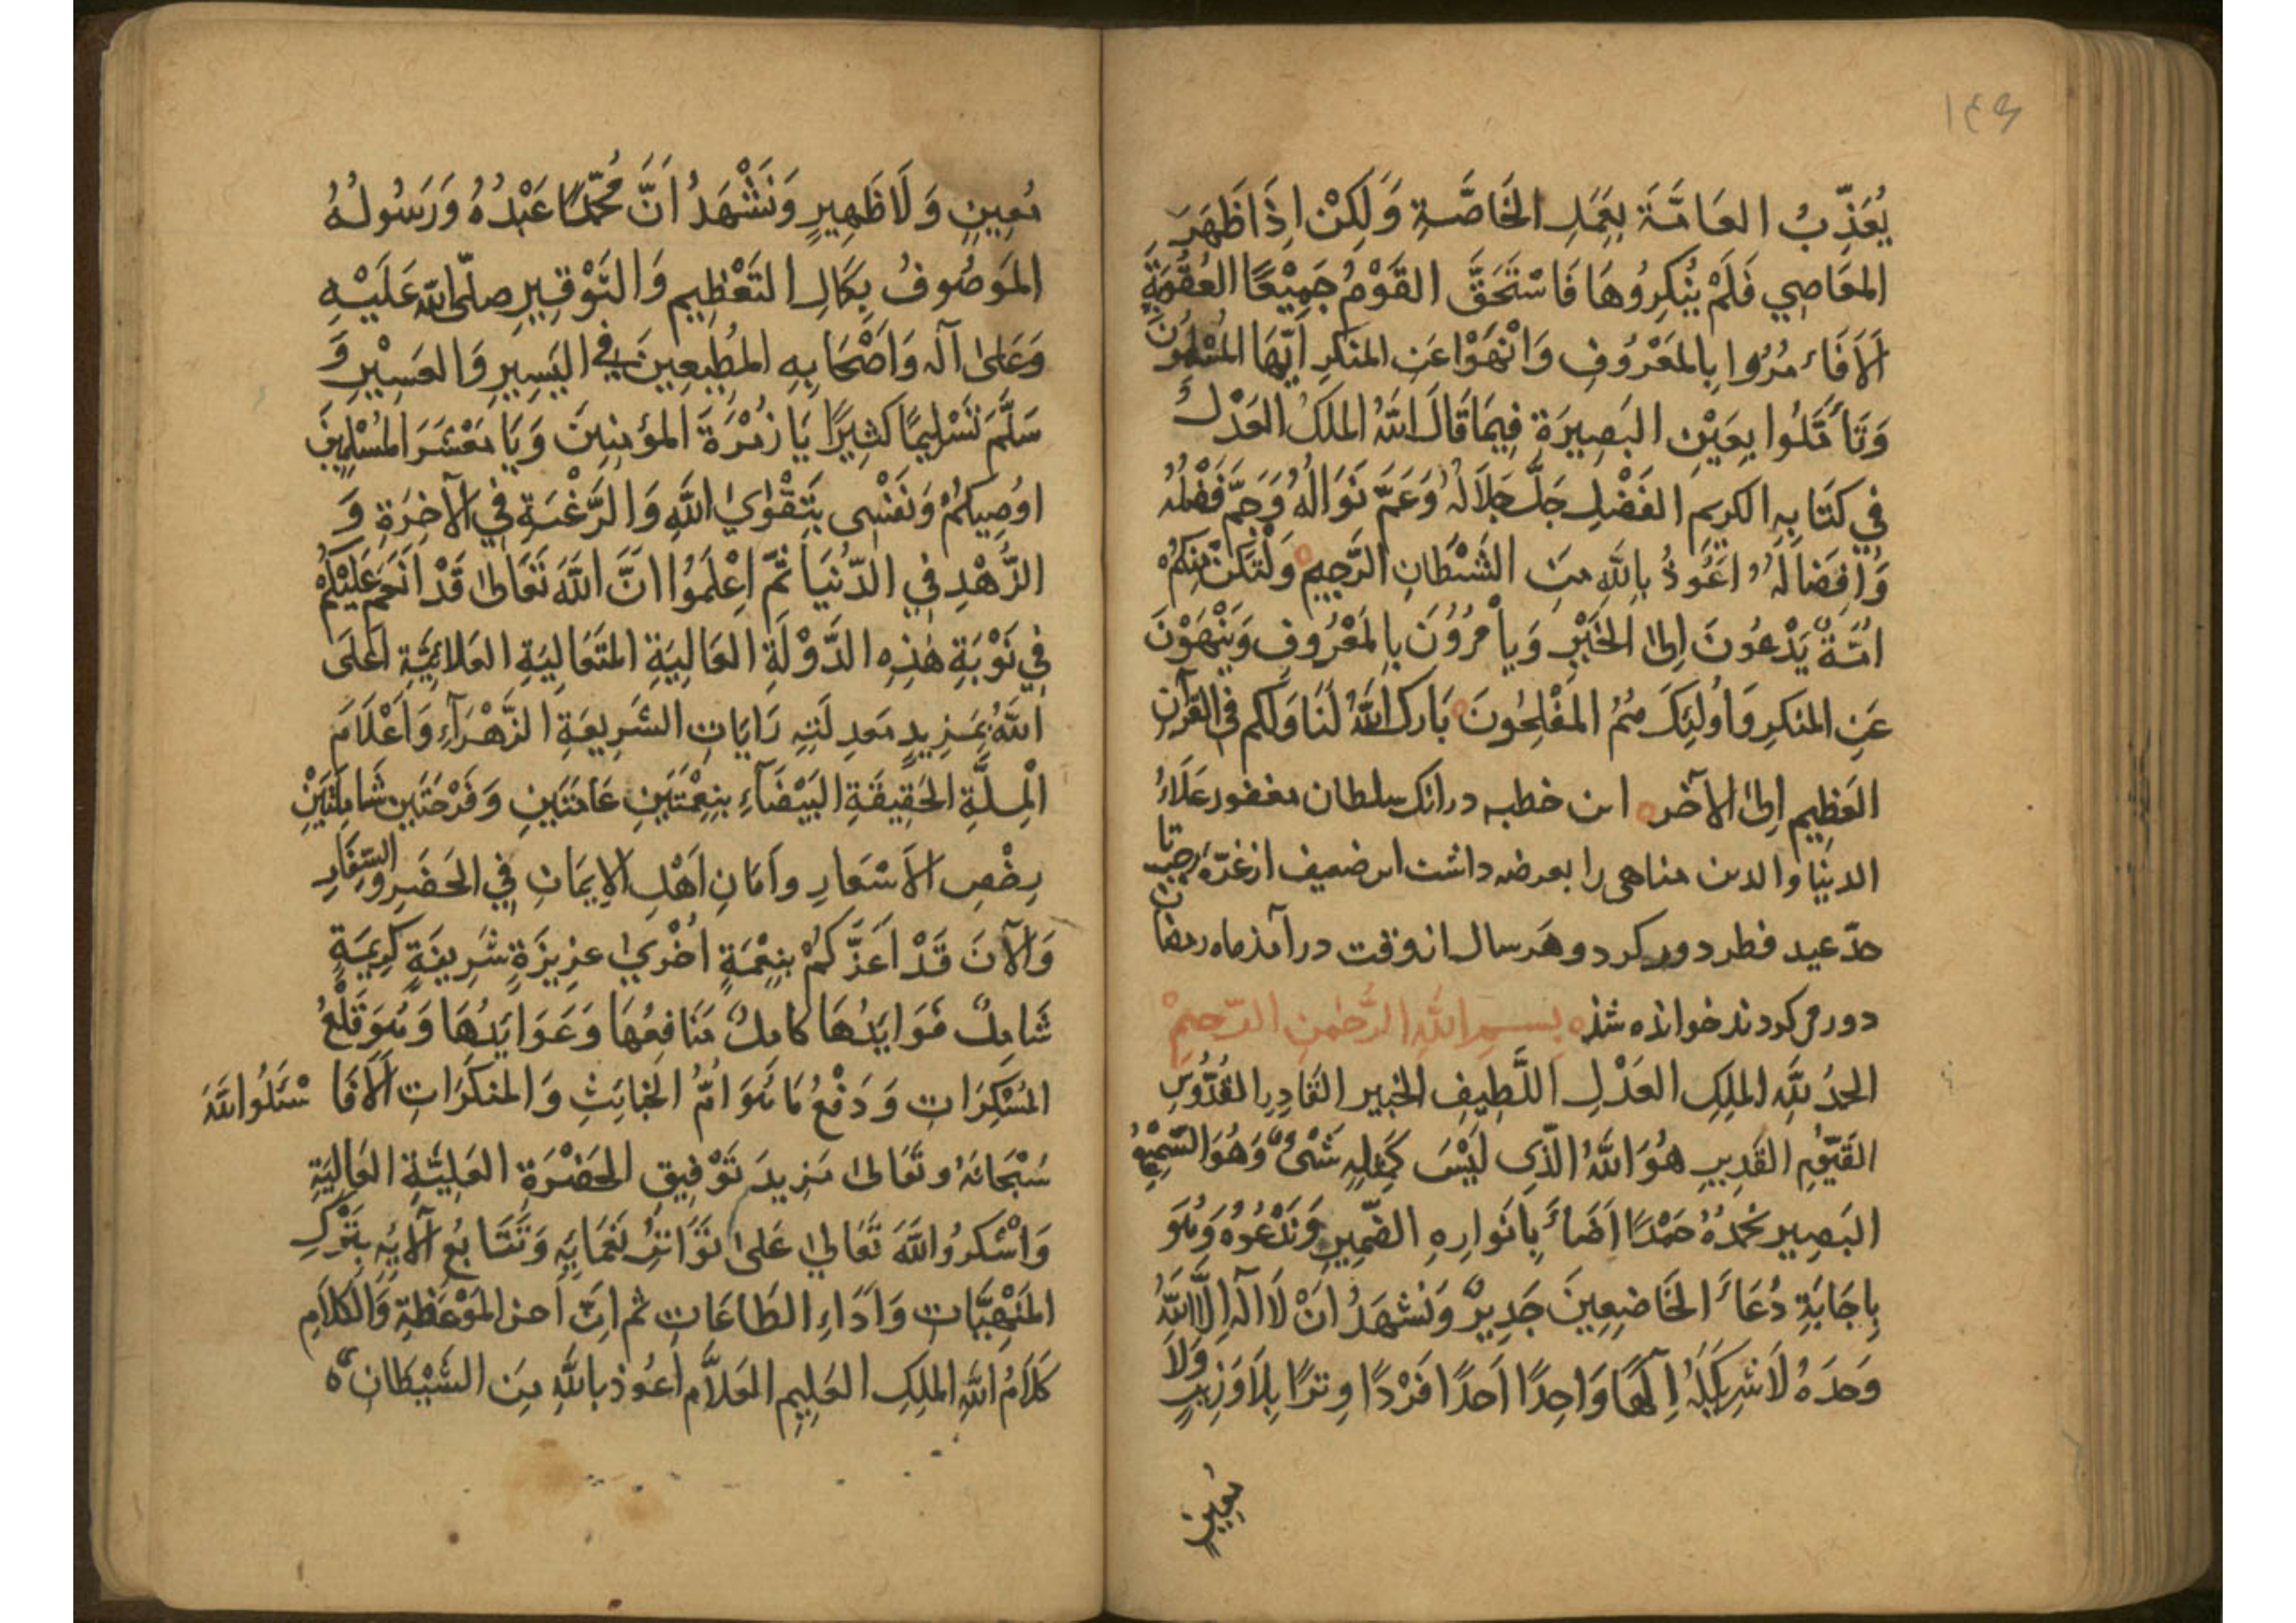 ۱۴۶
يُعَذِّبُ العَامَّةَ بِعَمَلِ الخَاصَّةِ وَلَكِنْ اِذَا ظَهَرَ
المعَاصِي فَلَمْ يُنْكِرُوهَا فَاسْتَحَقَّ القَوْمُ جَمِيْعًا العُقُوبَةِ
اَلَا فَاءمُرُوا بِالمَعْرُوفِ وَانْهَوْا عَنِ المنكَرِ اَيُّهَا المُسْلِمُونَ
وَتَأَمَّلُوا بِعَيْنِ البَصِيرَةِ فِيمَا قَالَ اللّٰهُ الملَكُ العَدْلُ
فِي كتَابِهِ الكَرِيمِ الفَضْلِ جَلَّ جَلَالُهُ وَعَمَّ نَوَالُهُ وَجَمَّ فَضْلُهُ
وَاِفضَالُهُ اَعُوذُ بِاللّٰهِ مِنَ الشَّيْطَانِ الرَّجِيمِ وَلْتَكُنْ مِنكُمْ
اُمَّةٌ يَدْعُونَ اِلىٰ الخَيْرِ وَيأْمُرُوُنَ بِالمَعْرُوفِ وَيَنْهَوْنَ
عَنِ المنكَرِ وَاُولئِكَ هُمُ المفْلِحُونَ بَارَكَ اللّٰهُ لَنَا وَلَكم فى القرْآنِ
العَظِيمِ اِلىٰ الآخر این خطبه در انك سلطان مغفور عَلَاءُ
الدنيا والدين مناهى را بعرضه داشت اين ضعيف از غرّهٔ رجب تا
حدّ عيد فطر دور كرد و هَر سال ازوقت در آمذ ماه رمضان
دور مى كردند خوانده شذ بِسْمِ اللّٰهِ الرَّحْمٰنِ الرَّحيمْ
الحمدُ لِلّٰهِ الملِكِ العَدْلِ اللَّطِيفِ الخبِير القَادِرِ القدُّوسِ
القَيّوْمِ القَدِيرِ هُوَ اللّٰهُ الّذِى لَيْسَ كَمِثلِهِ شَىْءٌ وَهُوَ السَّمِيْعُ
البَصِير نَحْمدُهُ حَمْدًا اَضَاءَ بِاَنوَارِهِ الضَّمِيرِ وَنَدْعُوهُ وَهُوَ
بِاِجَابَةِ دُعَاءَ الخَاضِعِينَ جَدِيرٌ وَنَشهَدُ اَنْ لَا اِلٰهَ اِلَّا اللّٰهُ
وَحدَهُ لَا شرِيكَ لَهُ اِلٰهًا وَاحِدًا اَحدًا فَرْدًا وِترًا بِلَا وَزِيرٍ وَلَا
مُعِينٍ
مُعِينٍ وَلَا ظَهِيرٍ وَنَشْهَدُ اَنَّ مُحَمَّدًا عَبْدُهُ وَرَسُولُهُ
المَوصُوفُ بِكمَالِ التَعْظِيمِ وَالتَوْقِيرِ صلَّى اللّٰه عَلَيْهِ
وَعَلىٰ آلهِ وَاَصْحَابِهِ المُطِيعِينَ فى اليَسِيرِ وَالعَسِيْرِ وَ
سَلَّمَ تَسْلِيمًا كثِيرًا يَا زُمْرَةَ المؤمِنِينَ وَيَا مَعْشَرَ المُسْلِمِينَ
اوُصِيكُمْ وَنَفْسِى بِتَقْوٰي اللّٰهِ وَالرَّغْبَةِ فِي الآخِرَةِ وَ
الزُّهْدِ فِي الدُّنيَا ثُمَّ اِعْلَمُوا اَنَّ اللّٰهَ تَعَالىٰ قَدْ اَنعَمَ عَلَيْكُمْ
فِي نَوْبَةِ هٰذِهِ الدَّوْلَةِ العَالِيَةِ المتَعَاليَةِ العَلائِيَّةِ اَعْلَى
اللّٰهُ بِمَزِيدِ مَعدِلَتِهِ رَايَاتِ الشَرِيعَةِ الزَّهْرَآءِ وَاَعْلَامَ
الْمِلَّةِ الحَقِيقَةِ البَيْضَآءِ بِنِعْمَتَينِ عَامَّتَينِ وَفَرْحَتَينِ شَامِلَتَيْنِ
بِرخْصِ الاَسْعَارِ وَاَمَانِ اَهْلِ الاِيمَانِ فِي الحَضَرِ وَالسِّفَارِ
وَالآنَ قَدْ اَعَزَّكُمْ بِنِعْمَةٍ اُخْرٰي عزِيزَةٍ شَرِيفَةٍ كَرِيمَةٍ
شَامِلٌ فَوَايدُهَا كامِلٌ مَنَافِعُهَا وَعَوَايدُهَا وَهُوَ قَلْعُ
المُسْكِرَاتِ وَدَفْعُ مَا هُوَ اُمُّ الخبَائِثِ وَالمنكَرَاتِ اَلَا فَاسْئَلُوا اللّٰهَ
سُبْحَانَهُ وَتَعَالىٰ مَزِيدَ تَوْفِيقِ الحَضْرَةِ العَلِيَّةِ العَالِيَةِ
وَاشْكرُوا اللّٰهَ تَعَالىٰ عَلىٰ تَوَاتُرِ نَعْمَايِهِ وَتَتَابُعِ آلَايِهِ بِتَرْكِ
المَنْهِيَّاتِ وَاَدَاءِ الطَاعَاتِ ثم اِنَّ اَحسَن المَوْعظَةِ وَالكَلَامِ
كَلَامُ اللّٰهِ الملِكِ العَلِيمِ العَلَّامِ اَعُوذ بِاللّٰهِ مِنَ الشَّيْطَانِ